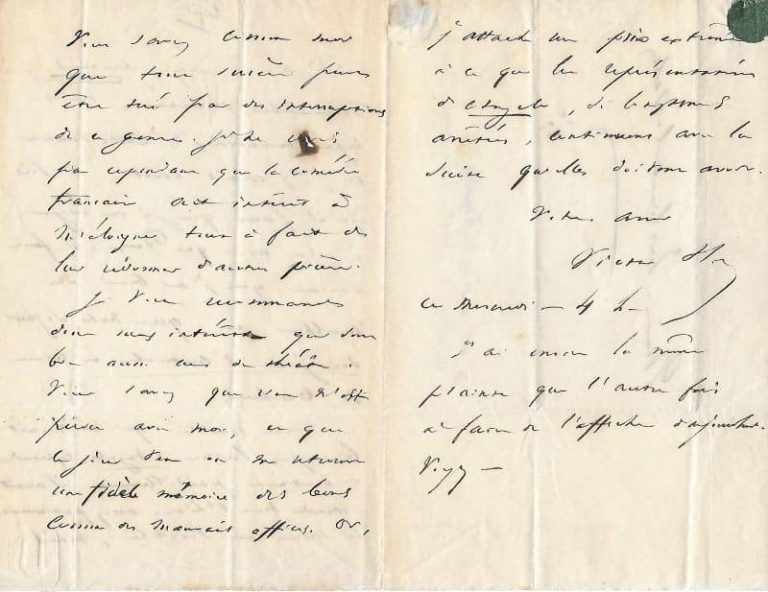 Vous savez comme moi
que tout succès peut
être tué par des interruptions
de ce genre. Je ne crois
pas cependant que la comédie
française ait intérêt à
m'éloigner tout à fait de
leur redonner d'autres pièces.
Je vous recommande
donc mes intérêts qui sont
bien aussi ceux du théâtre.
Vous savez que rien n'est
perdu avec moi, et que
le jour venu on me retrouve
une fidèle mémoire des bons
comme des mauvais offices. Or,
j'attache un prix extrême
à ce que les représentations
d'Angelo, si longtemps
arrêtées, continuent avec la
suite qu'elles doivent avoir.
Votre ami
Victor H
ce mercredi - 4 h -
J'ai encore la même
plainte que l'autre fois
à faire de l'affiche d'aujourd'hui.
Voyez -